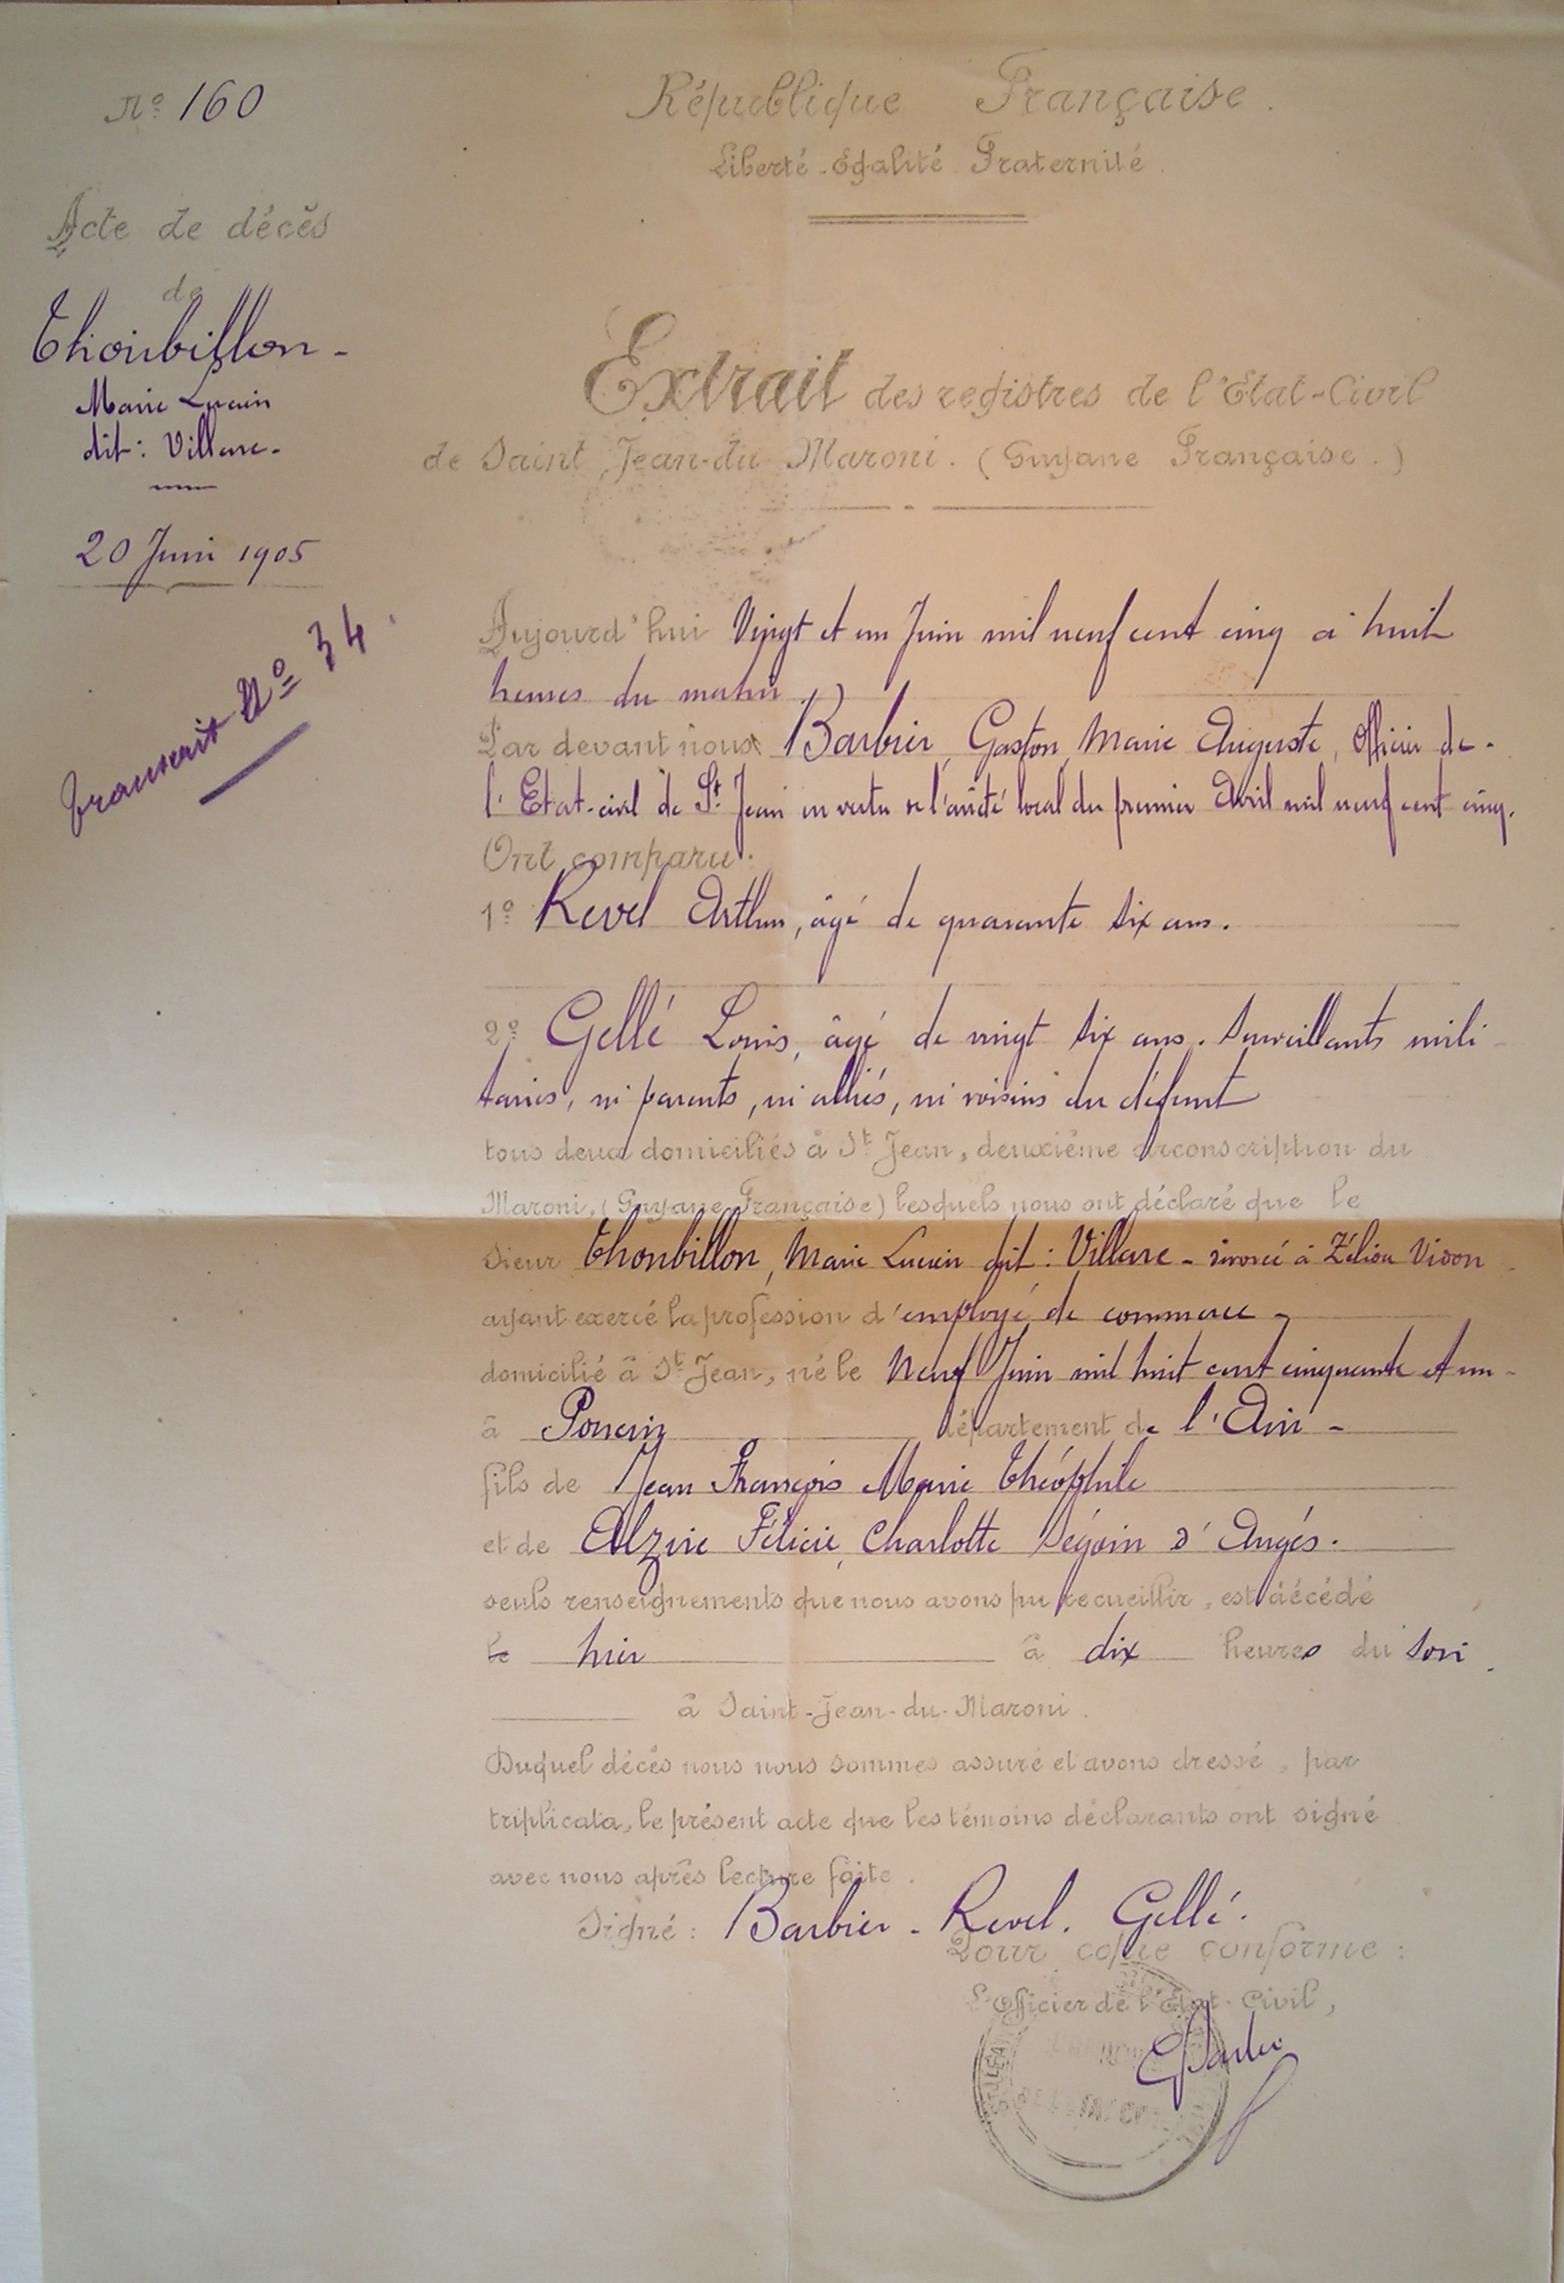 N° 160
Acte de décès
de
Thonbillon -
Marie Lucien
dit : Villare -
20 Juin 1905
transcrit N° 34
République Française.
Liberté - Egalité Fraternité.
Extrait des registres de l'Etat-Civil
de Saint Jean-du Maroni. (Guyane Française.)
Aujourd'hui Vingt et un Juin mil neuf cent cinq à huit
heures du matin
Par devant nous Barbier, Gaston, Marie Auguste, Officier de -
l'Etat-civil de St Jean en vertu de l'arrêté local du premier Avril mil neuf cent cinq.
Ont comparu :
1° Revel Arthur, âgé de quarante six ans.
2° Gellé Louis, âgé de vingt six ans. Surveillants mili-
taires, ni parents, ni alliés, ni voisins du défunt
tous deux domiciliés à St Jean, deuxième circonscription du
Maroni, (Guyane Française) lesquels nous ont déclaré que le
Sieur Thonbillon, Marie Lucien dit : Villare - divorcé à Zélia Vison
ayant exercé la profession d'employé de commerce -
domicilié à St Jean, né le Neuf Juin mil huit cent cinquante et un -
à Poncin département de l'Ain -
fils de Jean François Marie Théophile
et de Alzire Félicie, Charlotte Ségoin d'Angés.
seuls renseignements que nous avons pu recueillir, est décédé
le hier à dix heures du soir.
à Saint-Jean-du-Maroni.
Duquel décès nous nous sommes assuré et avons dressé, par
triplicata, le présent acte que les témoins déclarants ont signé
avec nous après lecture faite.
Signé : Barbier - Revel. Gellé.
Pour copie conforme :
L'Officier de l'Etat-Civil,
GBarbier